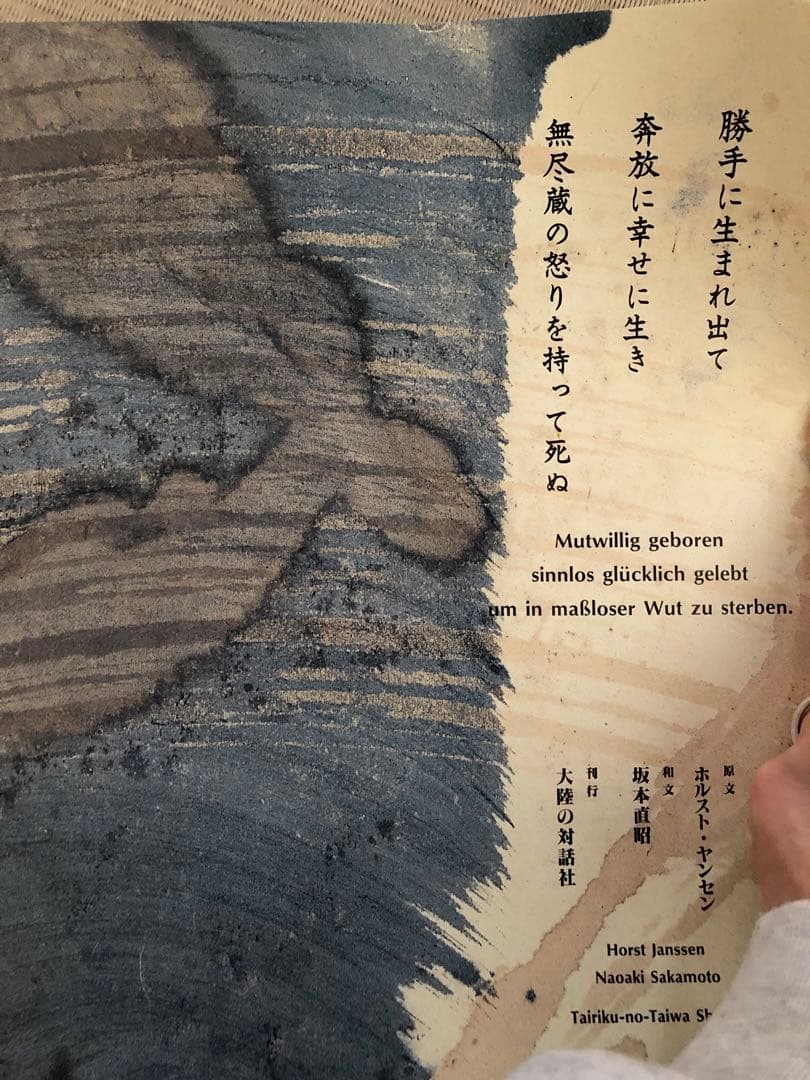 勝手に生まれ出て
奔放に幸せに生き
無尽蔵の怒りを持って死ぬ
Mutwillig geboren
sinnlos glücklich gelebt
um in maßloser Wut zu sterben.
原文
ホルスト・ヤンセン
和文
坂本直昭
刊行
大陸の対話社
Horst Janssen
Naoaki Sakamoto
Tairiku-no-Taiwa